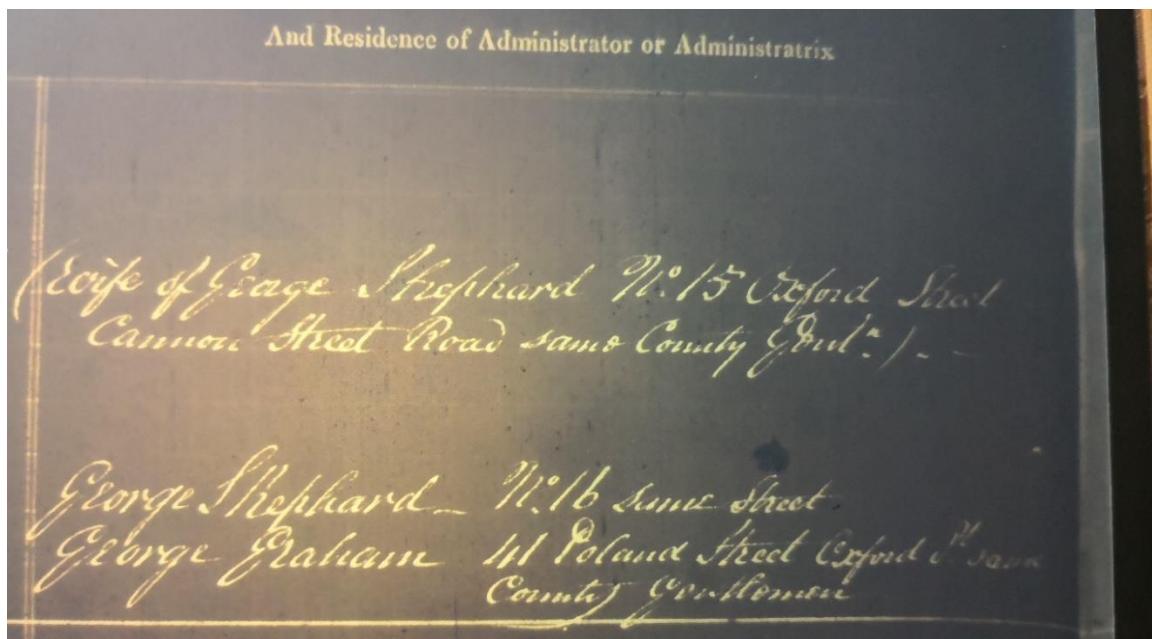 And Residence of Administrator or Administratrix
(Wife of George Shephard No. 15 Oxford Street
Cannon Street Road same County Gentn.)
George Shephard No. 16 same Street
George Graham 41 Poland Street Oxford St same
County Gentlemen